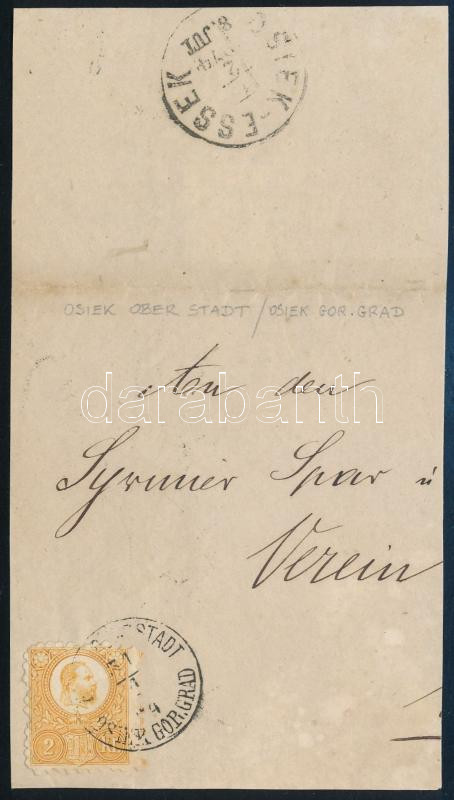 OSIEK-ESSEK
8.JUT
OSIEK OBER STADT / OSIEK GOR. GRAD
darabanth
An den
Syrmier Spar u
Verein
STADT
GOR.GRAD
2